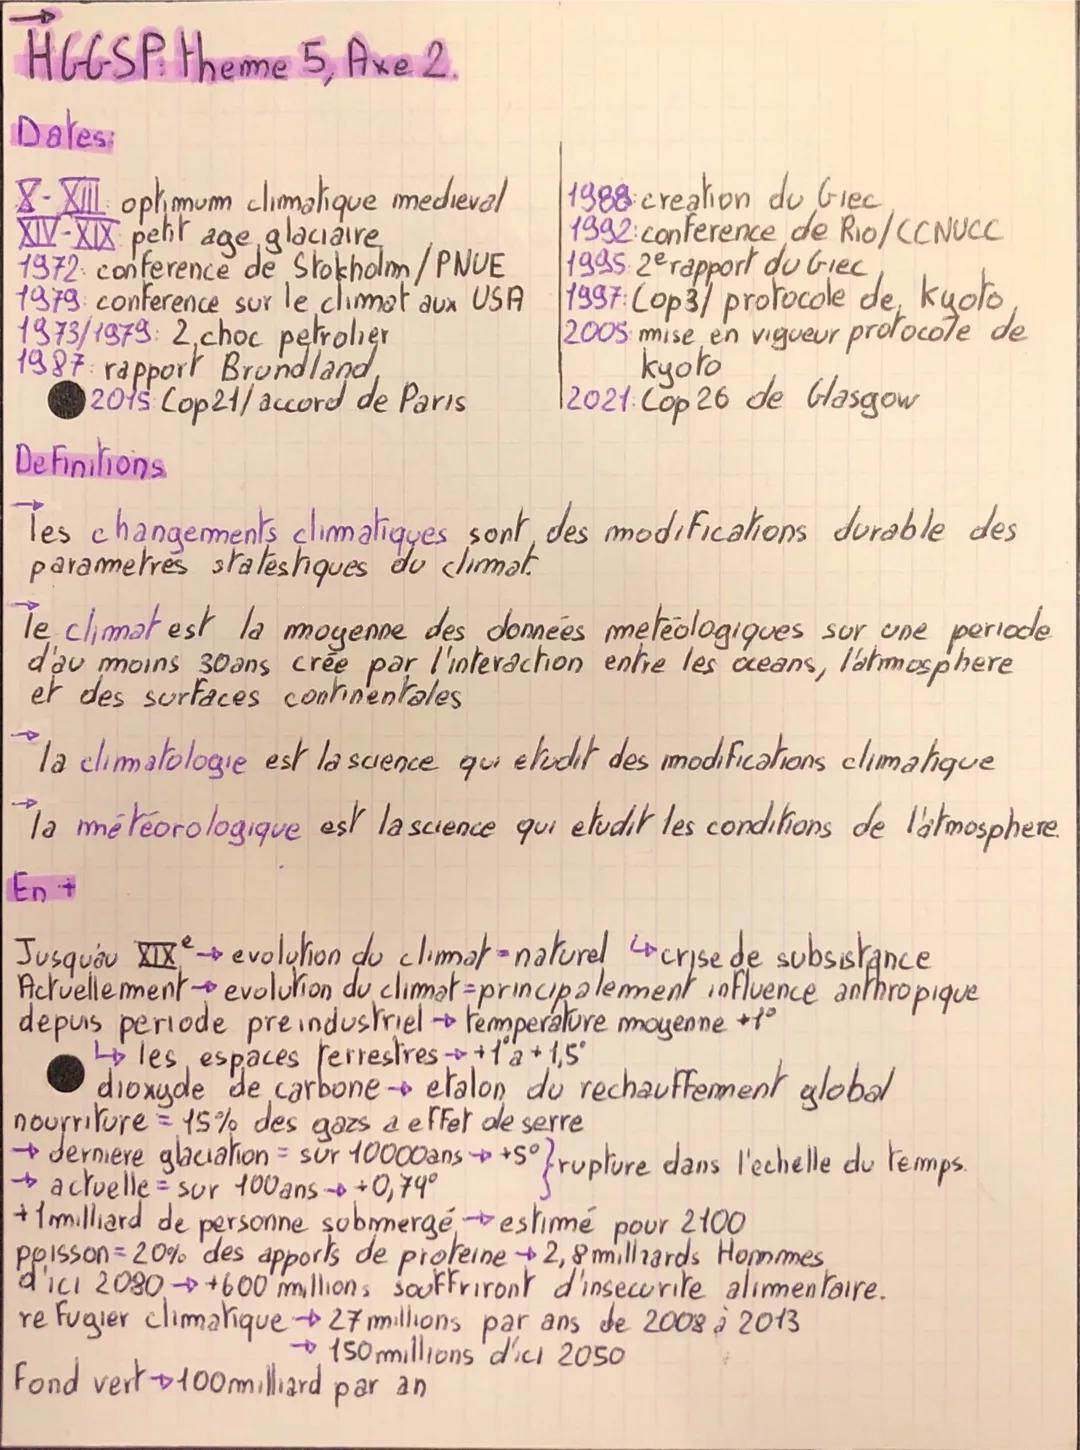 HGGSP: theme 5, Axe 2.
Dates:
X-XIII: optimum climatique medieval
XIV-XIX petit age glaciaire
1972: conference de Stokholm/PNUE
1979: conference sur le climat aux USA
1973/1979: 2 choc petrolier
1987: rapport Brundland
2015 Cop21/accord de Paris
1988: creation du Giec
1992: conference de Rio/CCNUCC
1995: 2e rapport du Giec
1997: Cop3/ protocole de kyoto
2005 mise en vigueur protocole de
kyoto
2021: Cop 26 de Glasgow
Definitions
→ les changements climatiques sont des modifications durable des
parametres statestiques du climat.
→ le climat est la moyenne des données meteologiques sur une periode
d'au moins 30ans crée par l'interaction entre les oceans, l'atmosphere
et des surfaces continentales
→ la climatologie est la science qui etudit des modifications climatique
→ la météorologique est la science qui etudit les conditions de l'atmosphere.
En +
Jusqu'au XIXe → evolution du climat = naturel ↳ crise de subsistance
Actuellement → evolution du climat = principalement influence anthropique
depuis periode preindustriel → temperature moyenne +1°
↳ les espaces terrestres → +1° a +1,5°
dioxyde de carbone → etalon du rechauffement global
nourriture = 15% des gazs a effet de serre
→ derniere glaciation = sur 10000ans → +5° } rupture dans l'echelle du temps.
→ actuelle = sur 100ans → +0,74°
+1milliard de personne submergé → estimé pour 2100
poisson = 20% des apports de proteine → 2,8milliards Hommes
d'ici 2080 → +600 millions souffriront d'insecurite alimentaire.
refugier climatique → 27millions par ans de 2008 à 2013
→ 150millions d'ici 2050
Fond vert → 100milliard par an